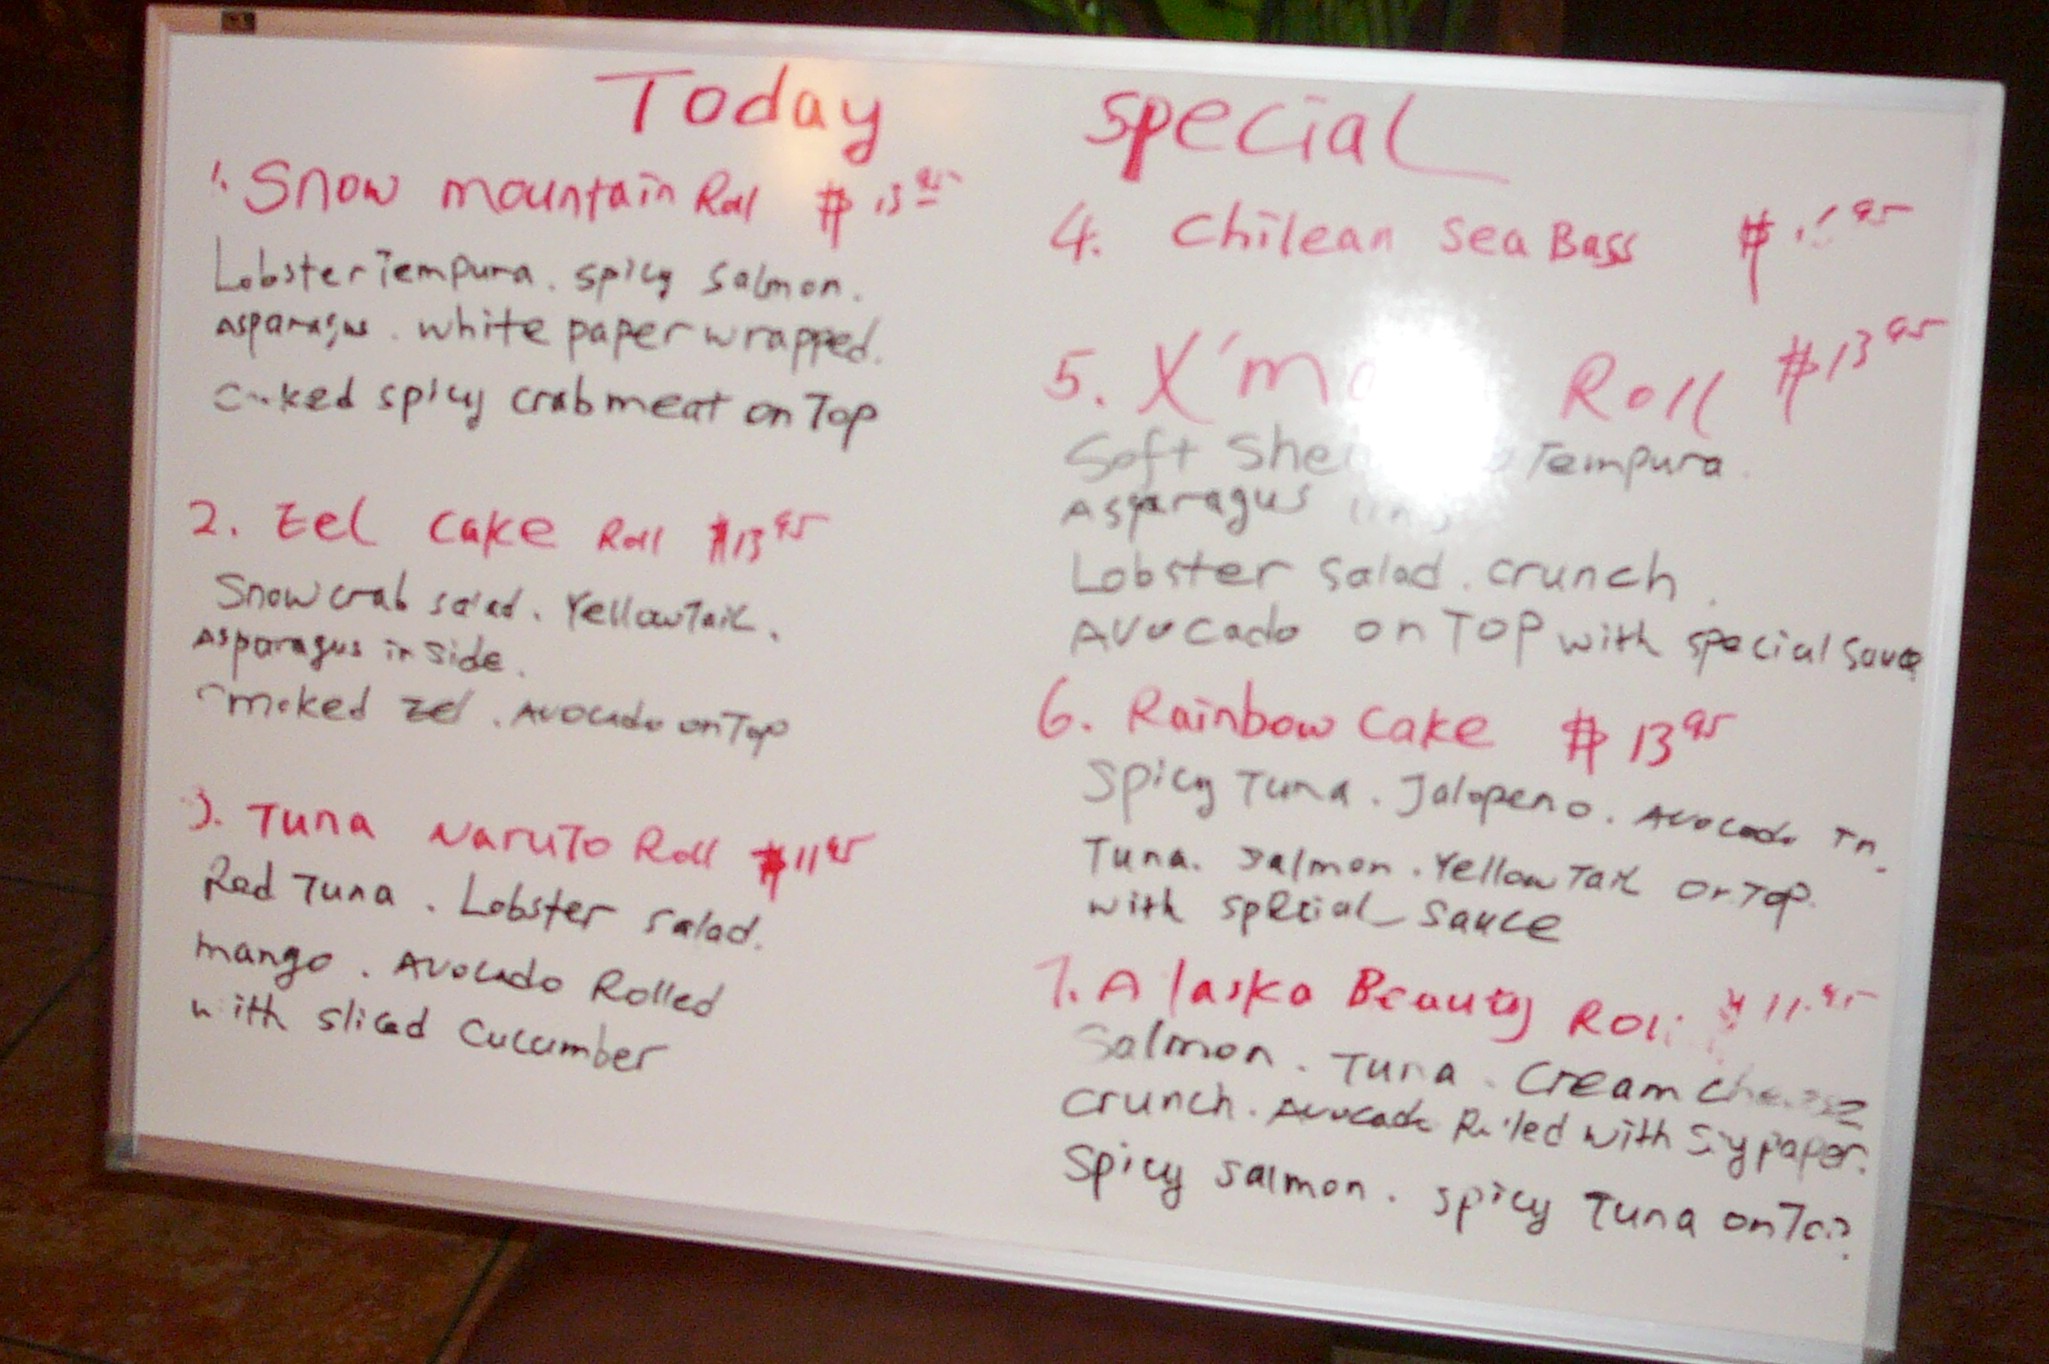 Today Special
1. Snow mountain Roll $13.95
Lobster Tempura. spicy salmon.
Asparagus. white paper wrapped.
cooked spicy crab meat on Top
2. Eel cake Roll $13.95
Snow crab salad. Yellow Tail.
Asparagus in side.
smoked eel. Avocado on Top
3. Tuna Naruto Roll $11.95
Red Tuna. Lobster salad.
mango. Avocado Rolled
with sliced cucumber
4. Chilean Sea Bass
5. Roll $13.95
Soft Tempura.
Asparagus
Lobster salad. crunch.
Avocado on TOP with special sauce
6. Rainbow Cake $13.95
Spicy Tuna. Jalopeno. Avocado In.
Tuna. Salmon. Yellow Tail on Top.
with special sauce
7. Alaska Beauty Roll $11.95
Salmon. Tuna. Cream cheese
crunch. Avocado Rolled with Soy paper.
Spicy salmon. spicy Tuna on Top